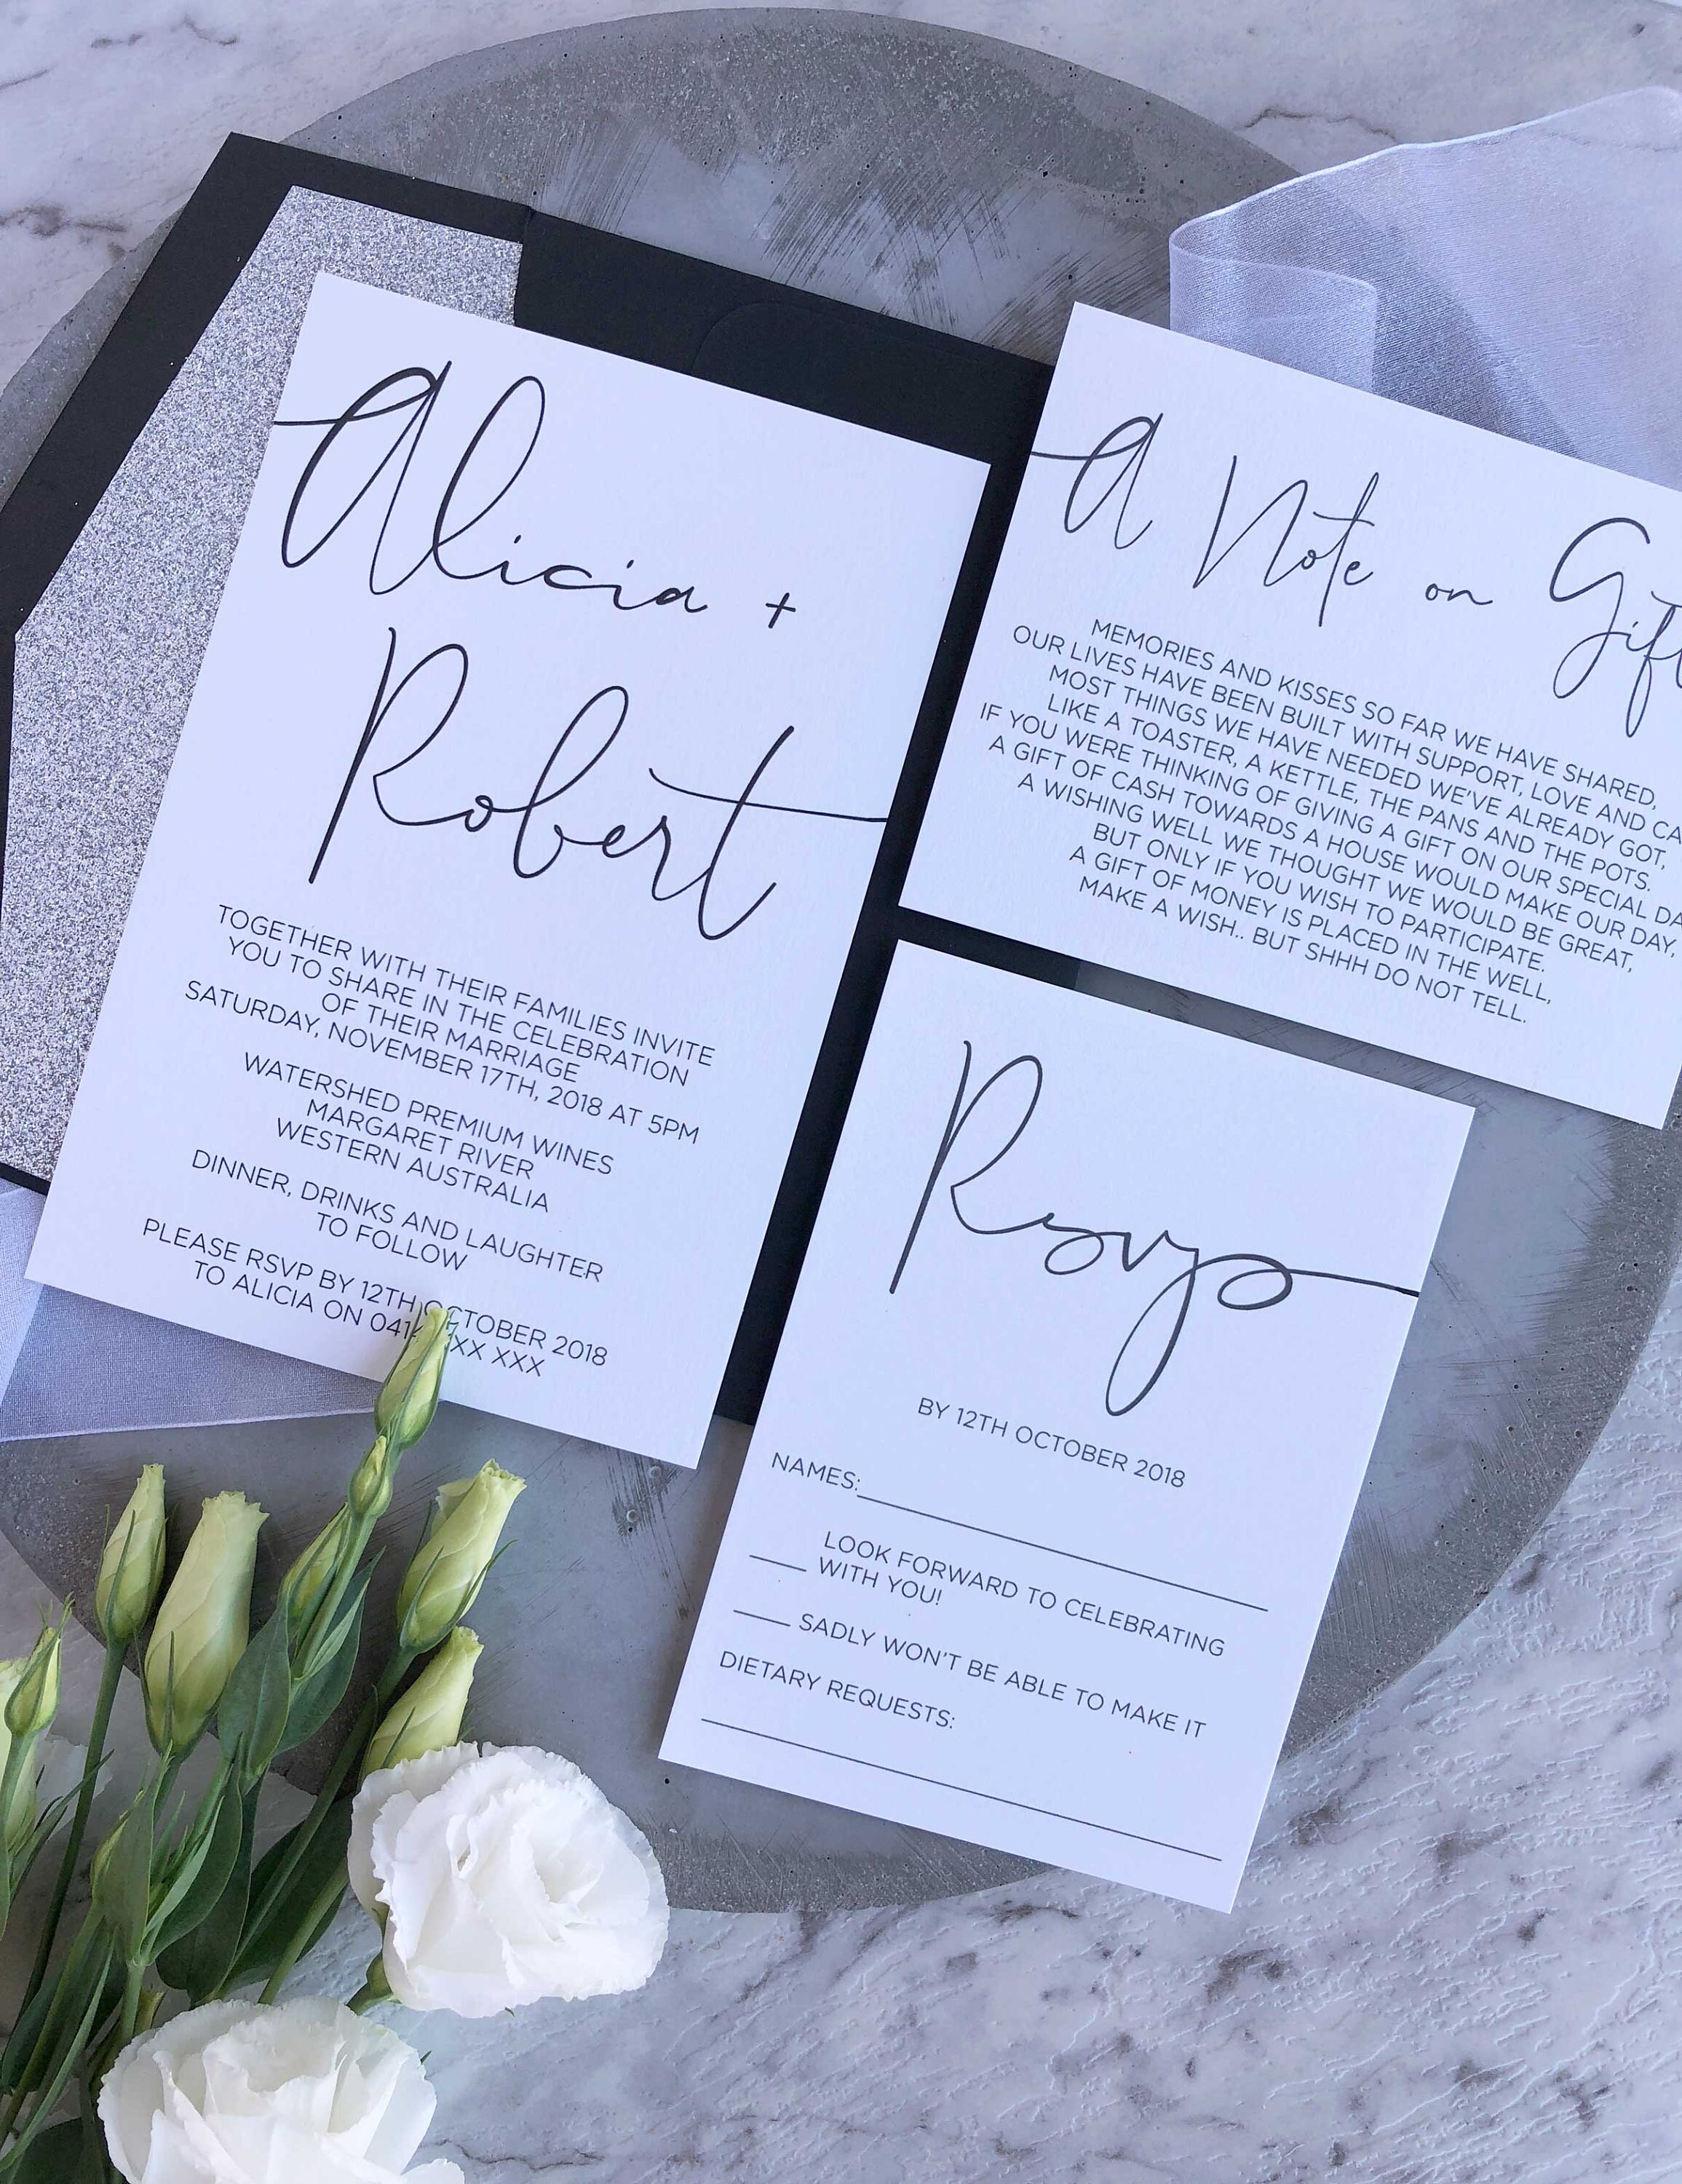 Alicia +
Robert
TOGETHER WITH THEIR FAMILIES INVITE
YOU TO SHARE IN THE CELEBRATION
OF THEIR MARRIAGE
SATURDAY, NOVEMBER 17TH, 2018 AT 5PM
WATERSHED PREMIUM WINES
MARGARET RIVER
WESTERN AUSTRALIA
DINNER, DRINKS AND LAUGHTER
TO FOLLOW
PLEASE RSVP BY 12TH OCTOBER 2018
TO ALICIA ON 041 XX XXX
A Note on
MEMORIES AND KISSES SO FAR WE HAVE SHARED,
OUR LIVES HAVE BEEN BUILT WITH SUPPORT, LOVE AND
MOST THINGS WE HAVE NEEDED WE'VE ALREADY GOT,
LIKE A TOASTER, A KETTLE, THE PANS AND THE POTS.
IF YOU WERE THINKING OF GIVING A GIFT ON OUR SPECIAL
A GIFT OF CASH TOWARDS A HOUSE WOULD MAKE OUR DAY,
A WISHING WELL WE THOUGHT WE WOULD BE GREAT,
BUT ONLY IF YOU WISH TO PARTICIPATE.
A GIFT OF MONEY IS PLACED IN THE WELL,
MAKE A WISH.. BUT SHHH DO NOT TELL.
Rsvp
BY 12TH OCTOBER 2018
NAMES:
LOOK FORWARD TO CELEBRATING
WITH YOU!
SADLY WON'T BE ABLE TO MAKE IT
DIETARY REQUESTS: